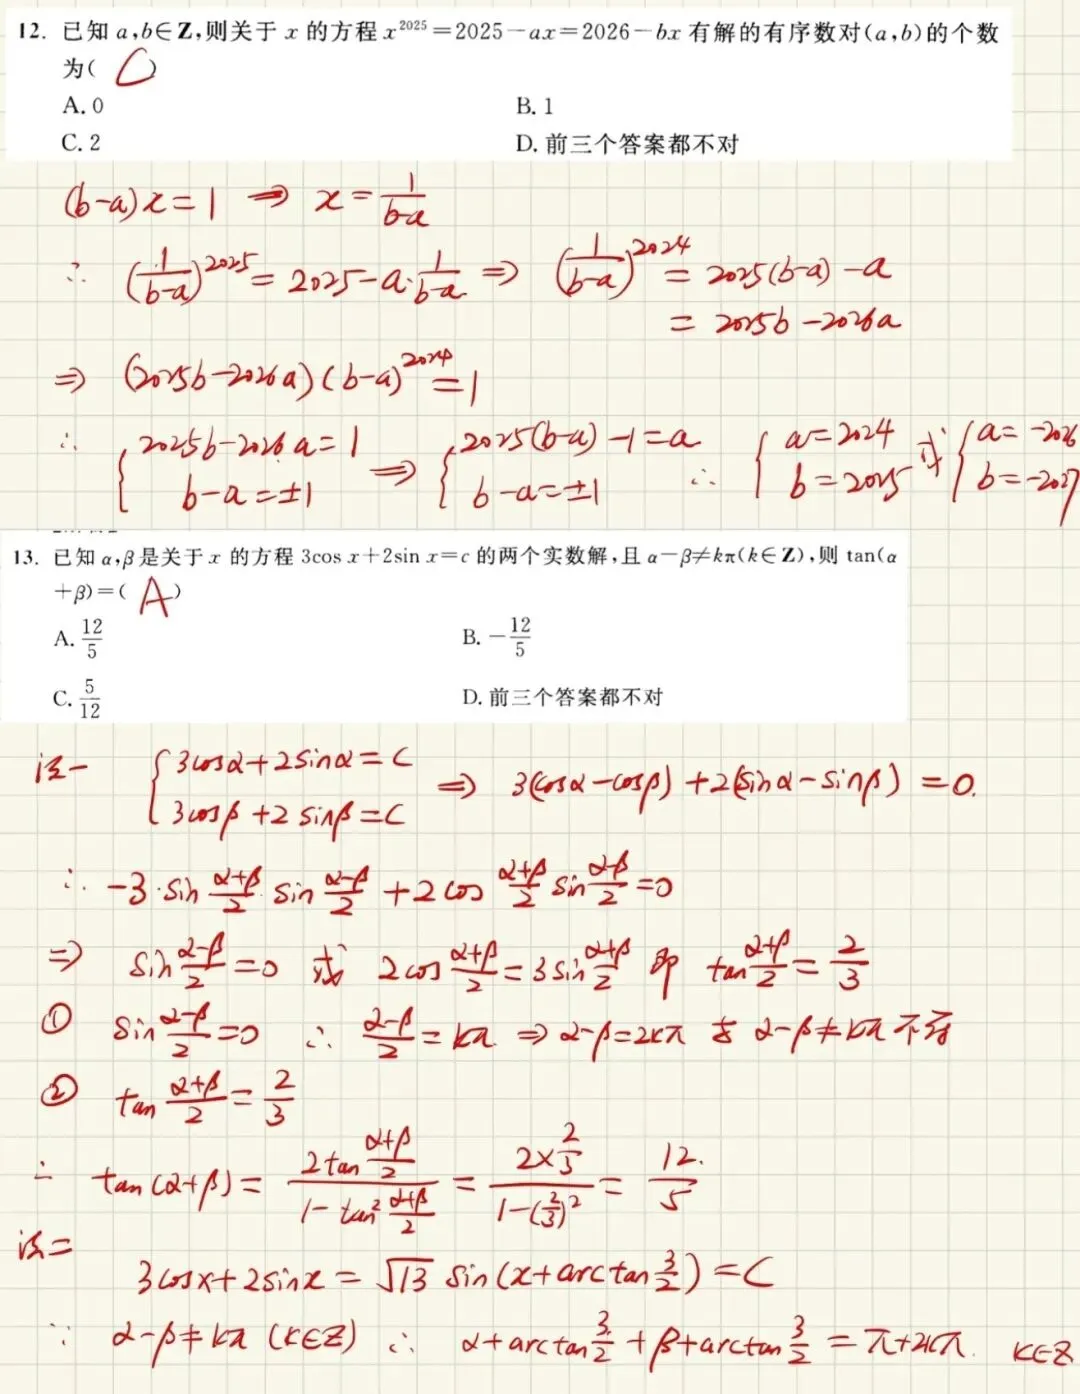 12. 已知 a,b∈Z,则关于 x 的方程 x^2025=2025-ax=2026-bx 有解的有序数对(a,b)的个数
为( C )
A. 0 B. 1
C. 2 D. 前三个答案都不对
(b-a)x=1 ⇒ x=1/(b-a)
∴ (1/(b-a))^2025=2025-a·1/(b-a) ⇒ (1/(b-a))^2024=2025(b-a)-a
=2025b-2026a
⇒ (2025b-2026a)(b-a)^2024=1
∴ {2025b-2026a=1, b-a=±1 ⇒ {2025(b-a)-1=a, b-a=±1 ∴ {a=2024, b=2025 或 {a=-2026, b=-2027
13. 已知 α,β是关于 x 的方程 3cos x+2sin x=c 的两个实数解,且 α-β≠kπ(k∈Z),则 tan(α
+β)=( A )
A. 12/5 B. -12/5
C. 5/12 D. 前三个答案都不对
法一 {3cosα+2sinα=C, 3cosβ+2sinβ=C ⇒ 3(cosα-cosβ)+2(sinα-sinβ)=0.
∴ -3·sin (α+β)/2·sin (α-β)/2+2cos (α+β)/2 sin (α-β)/2=0
⇒ sin (α-β)/2=0 或 2cos (α+β)/2=3sin (α+β)/2 即 tan (α+β)/2=2/3
① sin (α-β)/2=0 ∴ (α-β)/2=kπ ⇒ α-β=2kπ 与 α-β≠kπ 不符
② tan (α+β)/2=2/3
∴ tan(α+β)=(2tan (α+β)/2)/(1-tan² (α+β)/2)=(2×2/3)/(1-(2/3)²)=12/5
法二
3cosx+2sinx=√13 sin(x+arctan 3/2)=C
∵ α-β≠kπ (K∈Z) ∴ α+arctan 3/2+β+arctan 3/2=π+2kπ. K∈Z